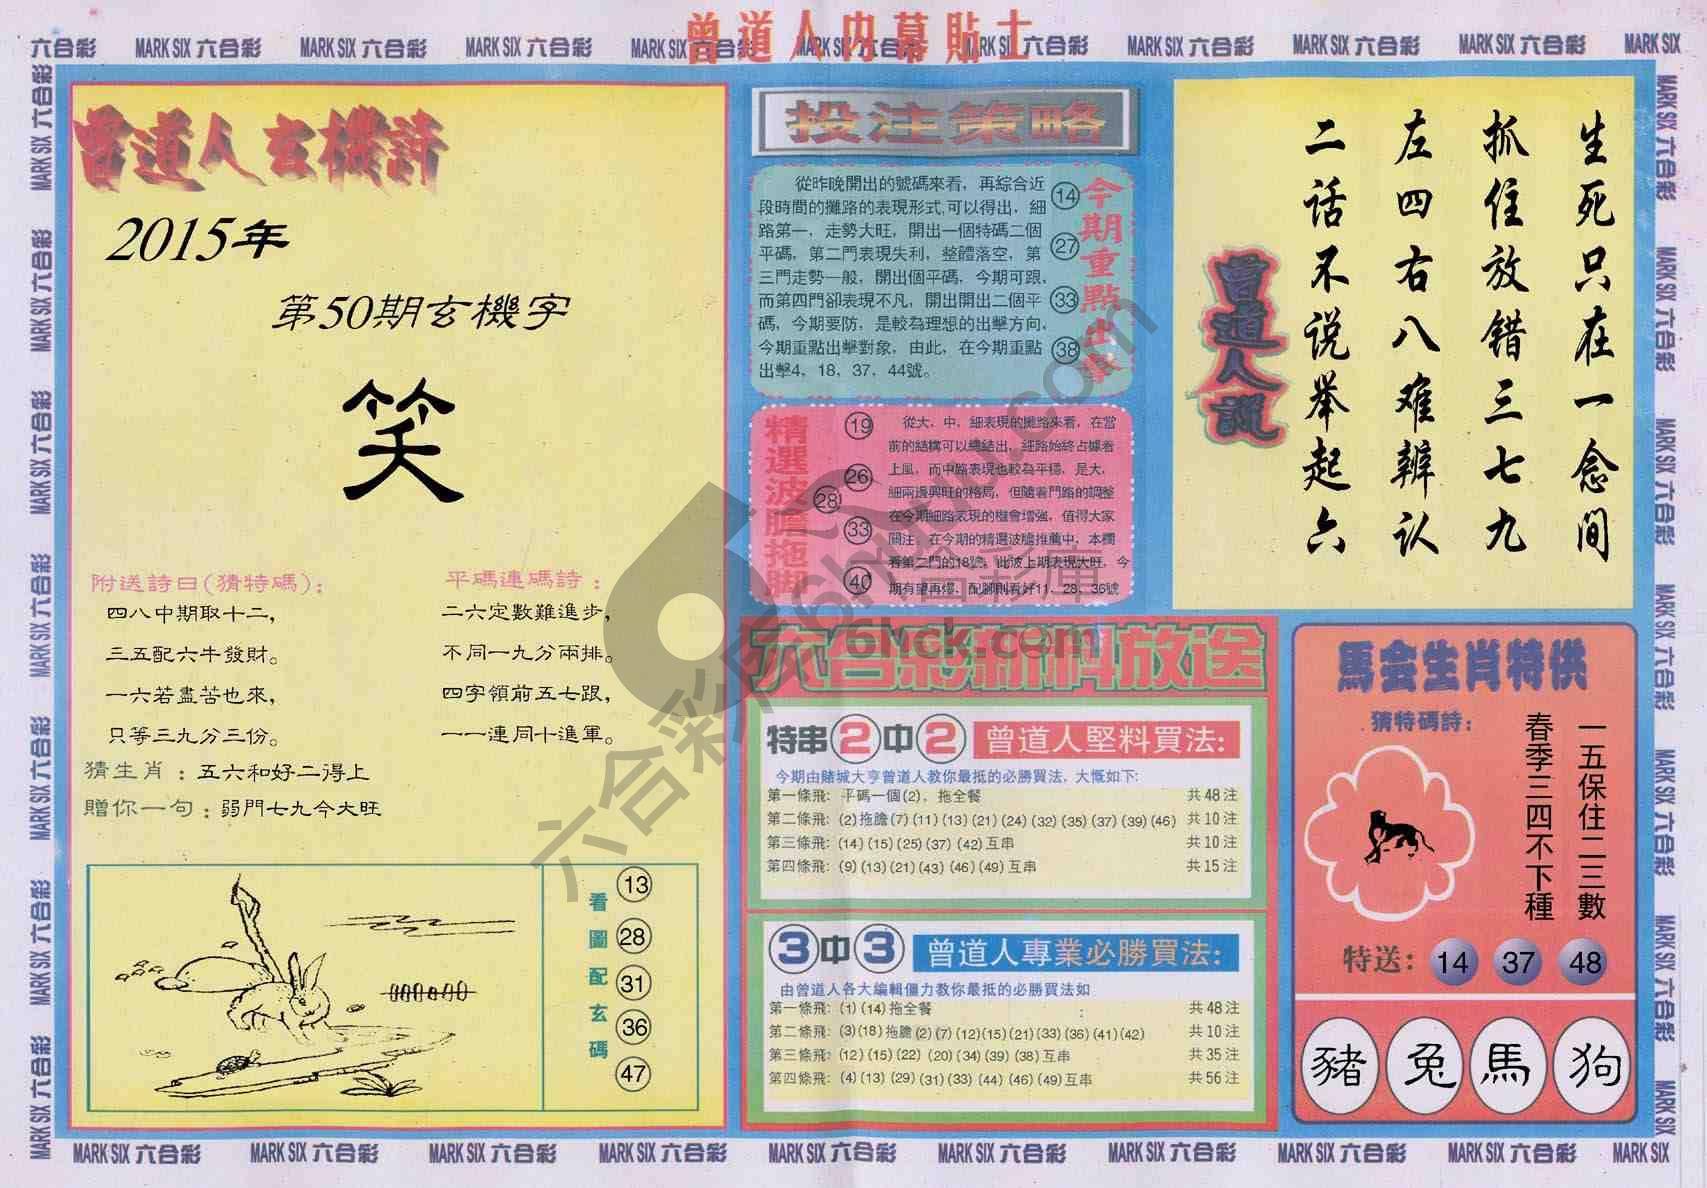 曾道人內幕貼士
六合彩 MARK SIX 六合彩 MARK SIX 六合彩 MARK SIX 六合彩 MARK SIX 六合彩 MARK SIX 六合彩 MARK SIX 六合彩 MARK SIX 六合彩 MARK SIX 六合彩 MARK SIX 六合彩 MARK SIX
曾道人玄機詩
2015年
第50期玄機字
笑
附送詩曰(猜特碼):
四八中期取十二,
三五配六牛發財。
一六若盡苦也來,
只等三九分三份。
平碼連碼詩:
二六定數難進步,
不同一九分兩排。
四字領前五七跟,
一一連同十進軍。
猜生肖:五六和好二得上
贈你一句:弱門七九今大旺
看圖配玄碼
13
28
31
36
47
投注策略
從昨晚開出的號碼來看,再綜合近
段時間的攤路的表現形式,可以得出,細
路第一,走勢大旺,開出一個特碼二個
平碼,第二門表現失利,整體落空,第
三門走勢一般,開出個平碼,今期可跟,
而第四門卻表現不凡,開出開出二個平
碼,今期要防,是較為理想的出擊方向,
今期重點出擊對象,由此,在今期重點
出擊4、18、37、44號。
14
27
33
38
今期重點出擊
精選波膽拖腳
19
26
28
33
40
從大,中,細表現的攤路來看,在當
前的結構可以總結出,細路始終占據着
上風,而中路表現也較為平穩,是大,
細兩邊興旺的格局,但隨着門路的調整
在今期細路表現的機會增強,值得大家
關注,在今期的精選波膽推薦中,本欄
看第二門的18號,此波上期表現大旺,今
期有望再爆,配腳則看好11、28、36號
六合彩新料放送
特串2中2 曾道人堅料買法:
今期由賭城大亨曾道人教你最抵的必勝買法,大慨如下:
第一條飛: 平碼一個(2),拖全餐 共48注
第二條飛: (2)拖膽(7)(11)(13)(21)(24)(32)(35)(37)(39)(46) 共10注
第三條飛: (14)(15)(25)(37)(42)互串 共10注
第四條飛: (9)(13)(21)(43)(46)(49)互串 共15注
3中3 曾道人專業必勝買法:
由曾道人各大編輯僵力教你最抵的必勝買法如
第一條飛: (1)(14)拖全餐 : 共48注
第二條飛: (3)(18)拖膽(2)(7)(12)(15)(21)(33)(36)(41)(42) 共10注
第三條飛: (12)(15)(22)(20)(34)(39)(38)互串 共35注
第四條飛: (4)(13)(29)(31)(33)(44)(46)(49)互串 共56注
生死只在一念间
抓住放错三七九
左四右八难辨认
二话不说举起六
曾道人說
馬会生肖特供
猜特碼詩:
一五保住二三數
春季三四不下種
特送: 14 37 48
豬 兔 馬 狗
六合彩库 6hck.com
MARK SIX 六合彩 MARK SIX 六合彩 MARK SIX 六合彩 MARK SIX 六合彩 MARK SIX 六合彩 MARK SIX 六合彩 MARK SIX 六合彩 MARK SIX 六合彩 MARK SIX 六合彩 MARK SIX